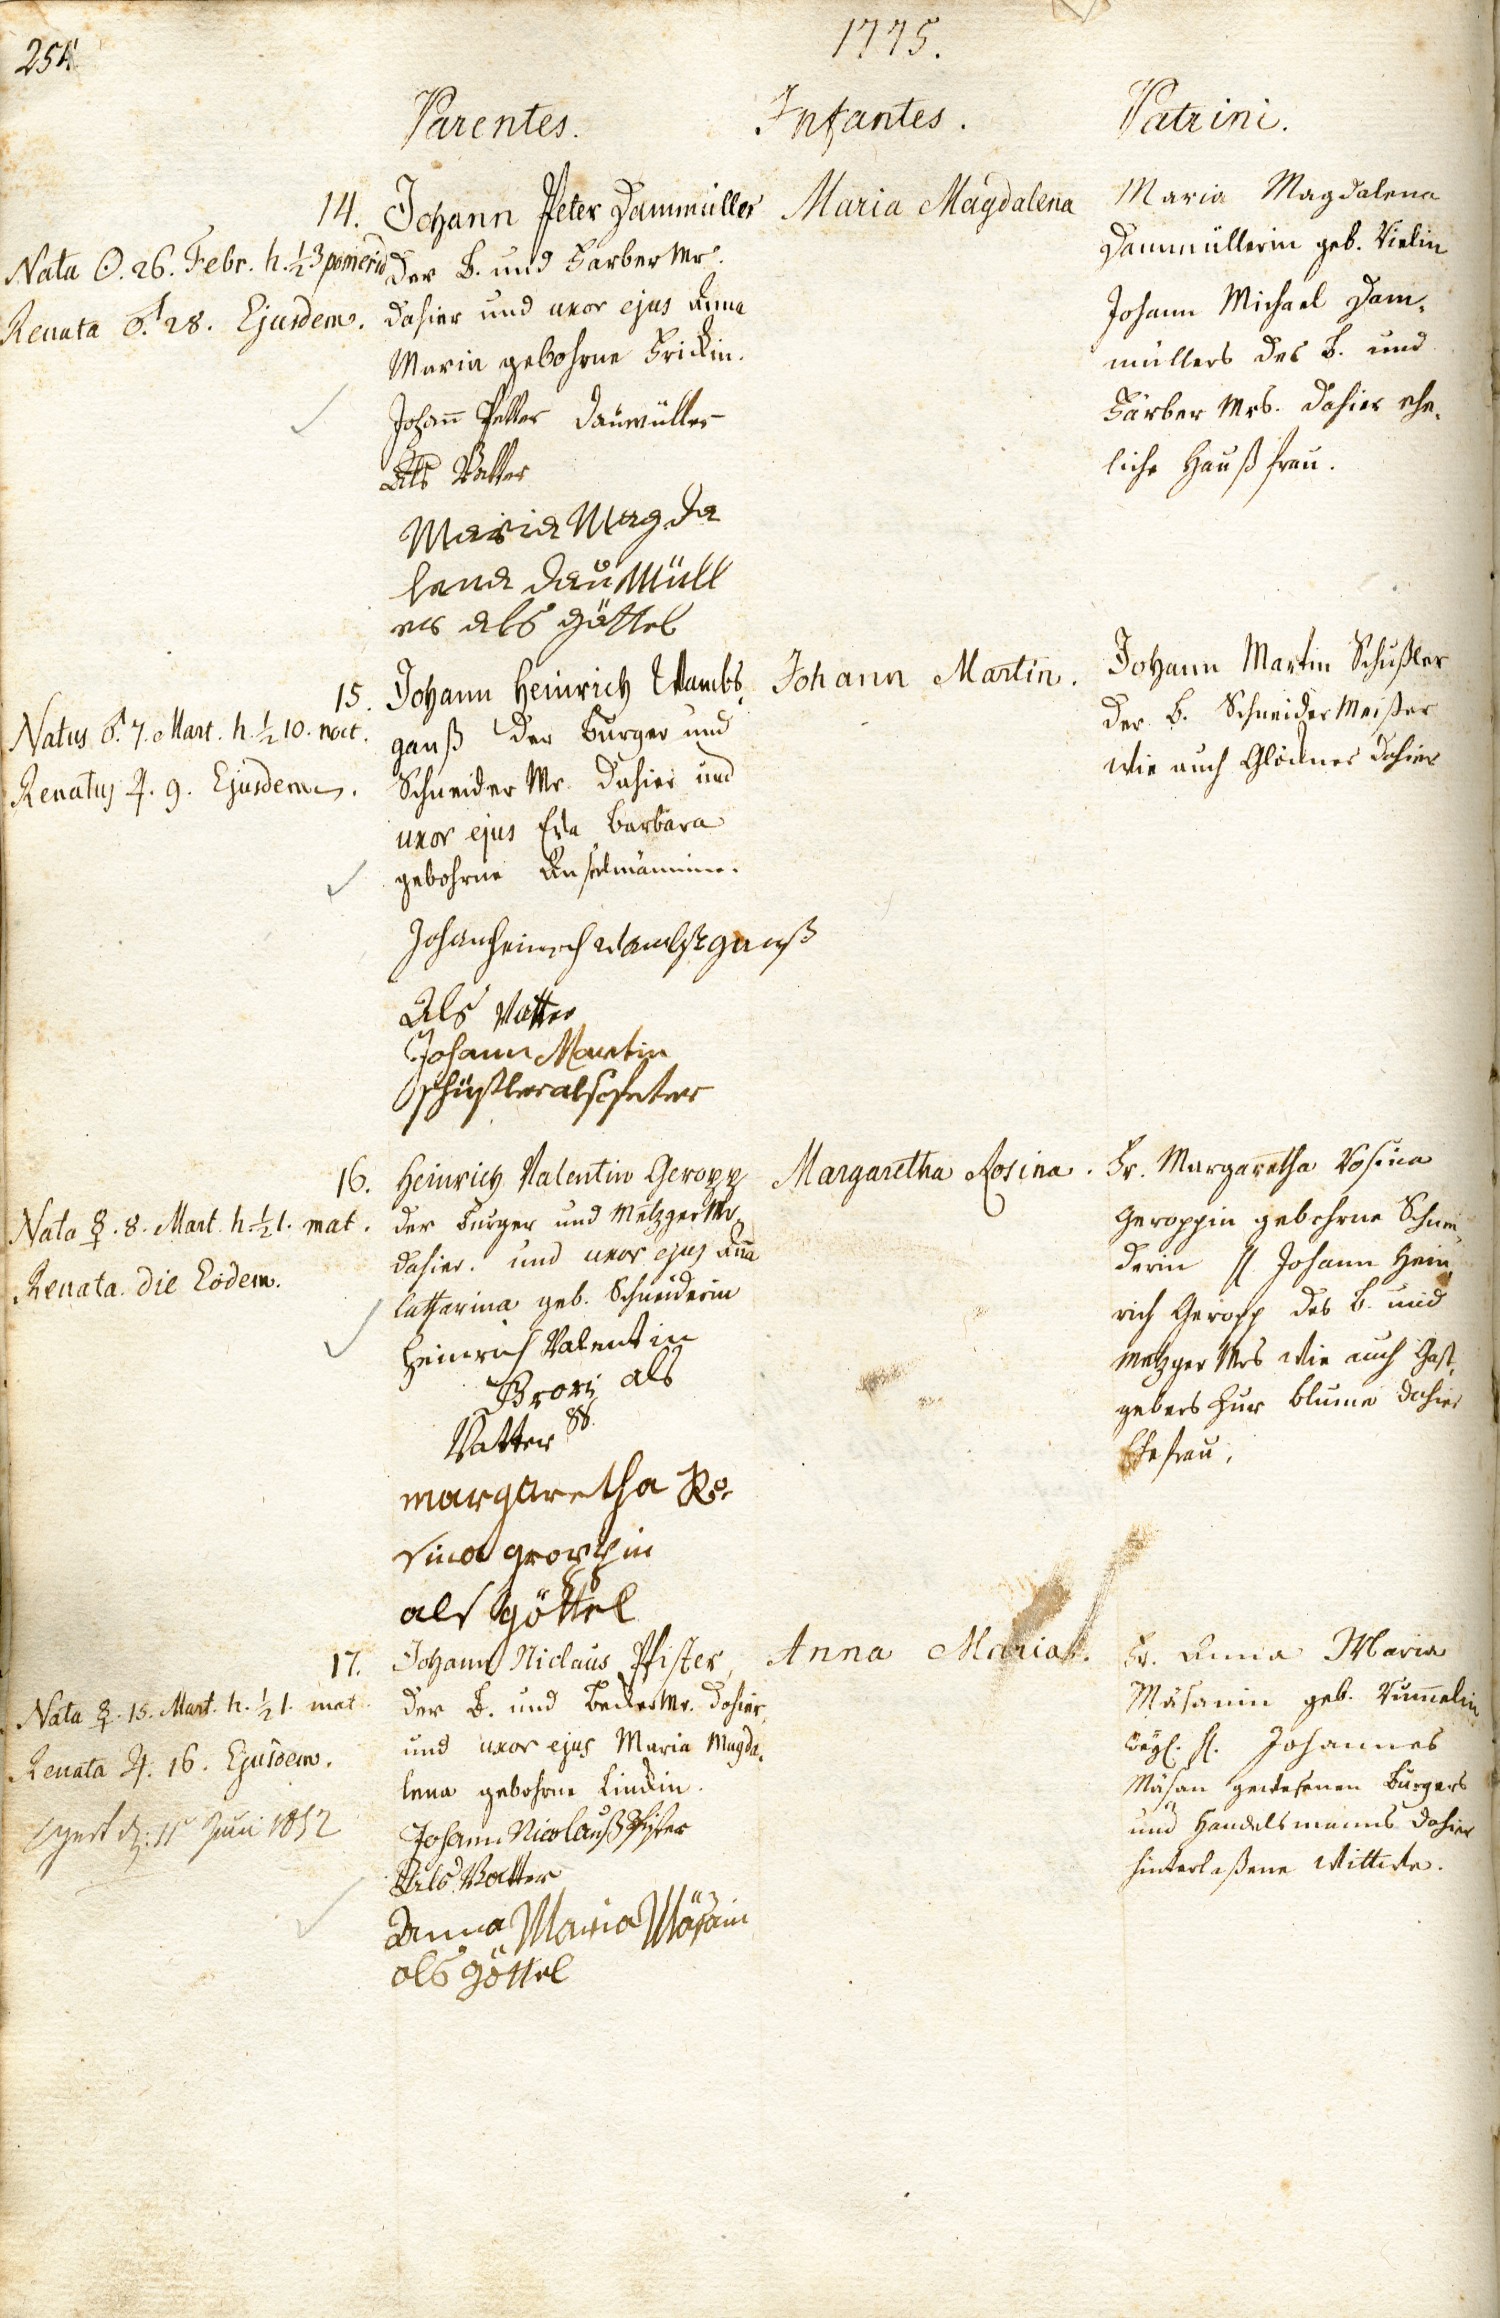 254
1775.
Parentes. Infantes. Patrini.
14.
Nata ☉. 26. Febr. h. ½ 3 pomerid
Renata ♂. 28. Ejusdem.
Johann Peter Dammüller
der B. und Färber Mr.
dahier und uxor ejus Anna
Maria gebohrne Frickin.
Johann Petter Daumüller
Als Vatter
Maria Magda
lena Daumüll
ers als Göttel
Maria Magdalena
Maria Magdalena
Dammüllerin geb. Vielin
Johann Michael Dam-
müllers des B. und
Färber Mrs. dahier ehe-
liche Haußfrau.
15.
Natus ♂. 7. Mart. h. ½ 10. noct.
Renatus ♃. 9. Ejusdem.
Johann Heinrich Wambs-
ganß der Burger und
Schneider Mr. dahier und
uxor ejus Eva Barbara
gebohrne
Johan heinrich Wambsganß
Als Vatter
Johann Martin
Schüßler als Peter
Johann Martin.
Johann Martin Schußler
der B. Schneider Meister
wie auch Glöckner dahier
16.
Nata ☿. 8. Mart. h. ½ 1. mat.
Renata die Eodem.
Heinrich Valentin Geropp
der Burger und Metzger Mr.
dahier. und uxor ejus Anna
Catharina geb. Schneiderin
Heinrich Valentin
als
Vatter
margaretha Ro-
sina groppin
als göttel
Margaretha Rosina.
Fr. Margaretha Rosina
Geroppin gebohrne Schnei-
derin H. Johann Hein-
rich Geropp des B. und
Metzger Mrs wie auch Gast-
gebers zur Blume dahier
Ehefrau.
17.
Nata ☿. 15. Mart. h. ½ 1. mat
Renata ♃. 16. Ejusdem.
11 Juni 1852
Johann Niclaus Pfister,
der B. und Becker Mr. dahier,
und uxor ejus Maria Magda-
lena gebohrne Linckin.
Johann Nicolauß Pfister
Als Vatter
Anna Maria Mäsain
als göttel
Anna Maria.
Fr. Anna Maria
Mäsanin geb. Rummelin
H. Johannes
Mäsan gewesenen Burgers
und Handelsmanns dahier
hinterlaßene Wittwe.